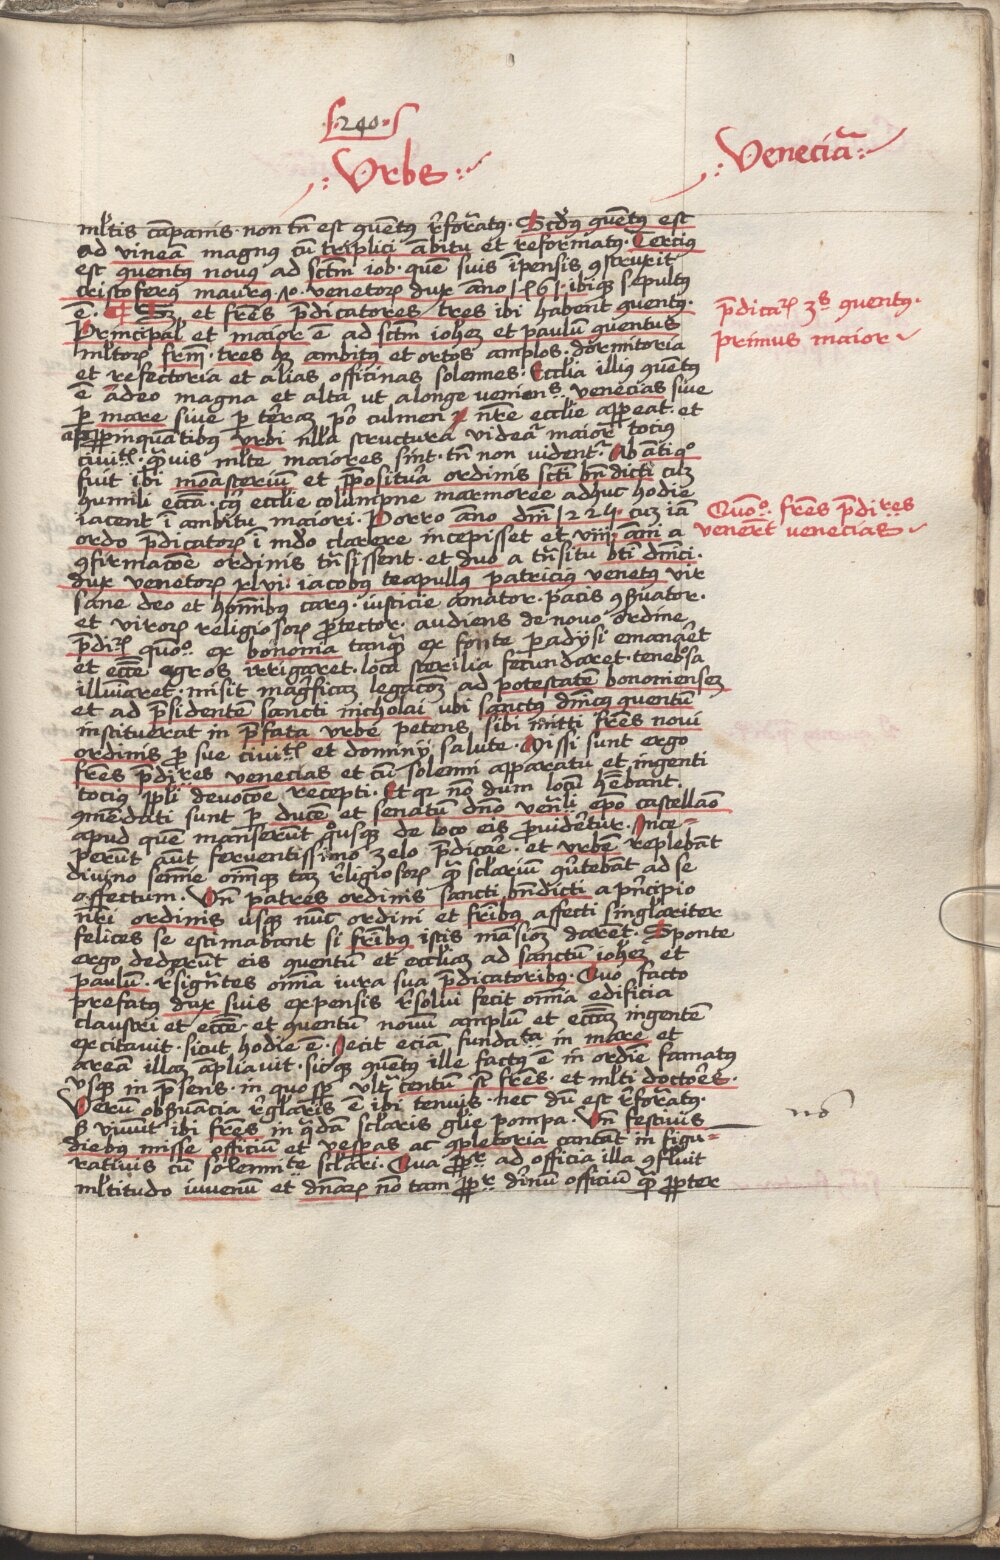 f. 240. s
Urbs
Veneciã
ml̃tis cãpanis · non tñ est quẽtꝰ r̃for̃atꝰ · Scd̃ꝰ quẽtꝰ est
ad vineã magnꝰ cũ triplici ãbitu et reformatꝰ · Terciꝰ
est quentꝰ nouꝰ ad sctm̃ iob · quẽ suis ĩpensis ꝯstruxit
cristoferꝰ maurꝰ venetoꝝ dux año ibiqꝫ sepultꝰ
ẽ · et fres p̃dicatores tres ibi habent quentꝰ ·
Principal̃ et maior ẽ ad sctm̃ ioheꝫ et paulũ quentus
ml̃toꝝ frm̃ · tres hꝫ ambitꝰ et ortos amplos · dormitoria
et refectoria et alias officinas solennes · Eccl̃ia illiꝰ quẽtꝰ
ẽ adeo magna et alta ut alonge veniens venecias siue
ꝑ mare siue ꝑ terraꝫ p̃o culmen nr̃e eccl̃ie appeat · et
appinquãtibꝰ vrbi nl̃la structura videat̃ maior tociꝰ
ciuitͭ · q̃uis ml̃te maiores sint · tñ non vident̃ · Ab ãtiqͦ
fuit ibi monasteriũ et p̃posituꝛa ordinis scti bñdicti cuꝫ
humili ecc̃a · cꝰ ecclie columpne marmoree adhuc hodie
iacent ĩ ambitu maiori · Porro año dñi 1224 cuꝫ iã
ordo p̃dicatoꝝ ĩ mũdo clarere incepisset et viiij añi a
ꝯfirmacõe ordinis tr̃sissent · et duo a tr̃situ bti dñici ·
dux venetoꝝ xlvi · iacobꝰ teapullꝰ patriciꝰ venetꝰ vir
sane deo et hõinibꝰ carꝰ · iusticie amator · pacis ꝯseruator ·
et viroꝝ religiosoꝝ p̃tector · audiens de nouo ordine
p̃dic̃ quõ ex bononia tanq̃ ex fonte paradysi emanãret
et ecc̃e agros irrigaret · loca sterilia fecundaret · tenebr̃sa
illuĩaret · misit magnificaꝫ legacõeꝫ ad potestatẽ bononiensem
et ad p̃sidentẽ sancti nicholai vbi sanctꝰ dñicꝰ quentũ
instituerat in p̃fata vrbe petens sibi mitti fres noui
ordinis ꝑ sue ciuitͭ et dominij salute · Missi sunt ergo
fres p̃dires venecias et cũ solenni apparatu et ingenti
tociꝰ ppl̃i deuocõe recepti · Et qꝛ nõ dum locũ hẽbant ·
ꝯmẽdati sunt ꝑ ducẽ et senatum dño veñli epo castellão
apud quẽ manserũt quousqꝫ de loco eis ꝓuidẽtur · Ince=
perũt aũt feruentissimo zelo p̃dicar̃e · et vrbẽ replebãt
diuino semĩe omĩqꝫ taꝫ r̃ligiosoꝝ q̃ sclariũ ꝯũtebãt ad se
affectum · Vñ patres ordinis sancti bñdicti a pñcipio
nr̃i ordinis usqꝫ nũc ordini et fribꝰ affecti singl̃ariter
felices se estimabant si fribꝰ istis mãsioꝫ darẽt · Sponte
ergo dederũt eis quentũ et eccl̃iaꝫ ad sanctũ ioheꝫ et
paulũ · r̃signãtes omĩa iura sua p̃dicatoribꝰ · Quo facto
prefatꝰ dux suis expensis r̃solui fecit omĩa edificia
claustri et ecc̃e · et quentũ nouũ amplũ et ecc̃aꝫ ingentẽ
excitauit · sicut hodie ẽ · Fecit eciã fundata in mare et
areã illaꝫ ampliauit · sicqꝫ quẽtꝰ ille factꝰ ẽ in ordĩe famatꝰ
vsqꝫ in p̃sens · in quo sp̃ vlt̃ centũ st̃ fres · et ml̃ti doctores ·
Verũ obseruãcia r̃gl̃aris ẽ ibi tenuis · nec dũ est r̃for̃atꝰ ·
s̃ viuũt ibi fres in q̃dã sclaris gl̃ie pompa · Vñ festiuis
diebꝰ misse officiũ et vesperas ac ꝯpletoria cantãt in figu=
ratiuis cũ solennite sclari · Qua ppt̃r ad officia illa ꝯfluit
ml̃titudo iuuenũ et dñarꝝ nõ tam ppt̃r diuinũ officiũ q̃ ppter
p̃dicaꝝ 3ˢ quentꝰ ·
primus maior
Quõͦ fres p̃dires
venerũt venecias
nõ